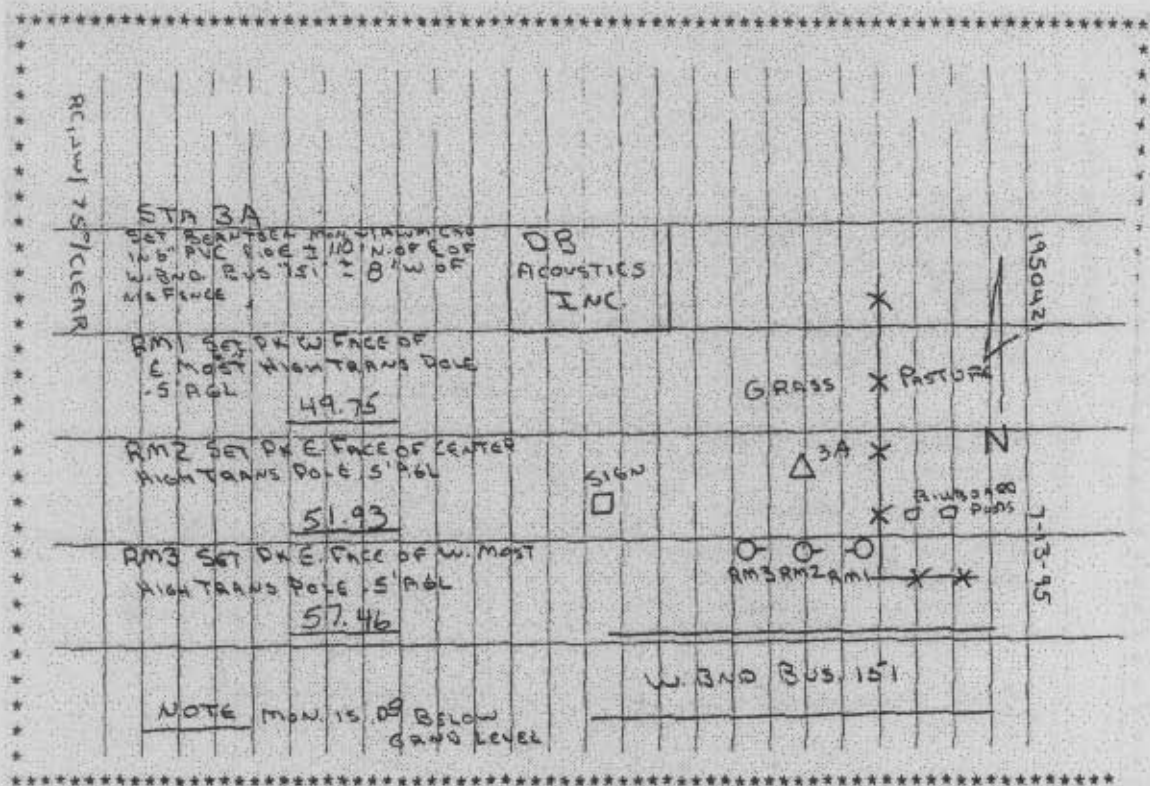 RC, JW / 75°/CLEAR
STA 3A
SET BERNTSEN MON. W/ALUM CAP
IN 6" PVC ± 110' N. OF € OF
W. BND BUS "151" ± 8' W OF
NS FENCE
RM1 SET PK W FACE OF
E MOST HIGH TRANS POLE
.5' AGL
49.75
RM2 SET PK E. FACE OF CENTER
HIGH TRANS POLE .5' AGL
51.93
RM3 SET PK E. FACE OF W. MOST
HIGH TRANS POLE .5' AGL
57.46
NOTE MON. IS .09 BELOW
GRND LEVEL
DB
ACOUSTICS
INC.
GRASS
PASTURE
3A
SIGN
BILLBOARD
RM3 RM2 RM1
W. BND BUS. 151
N
1950421
7-13-95